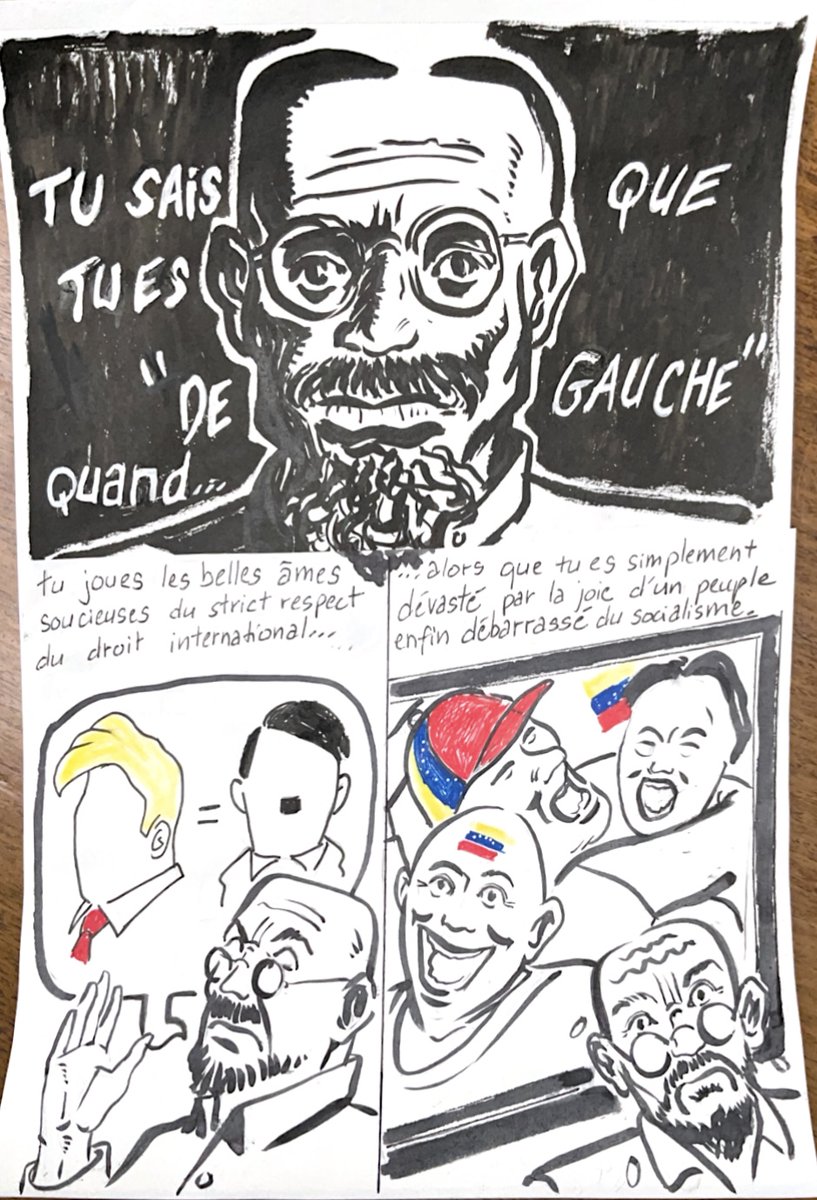 TU SAIS QUE
TU ES
"DE GAUCHE"
Quand...
tu joues les belles âmes
soucieuses du strict respect
du droit international...
...alors que tu es simplement
dévasté par la joie d'un peuple
enfin débarrassé du socialisme.
=